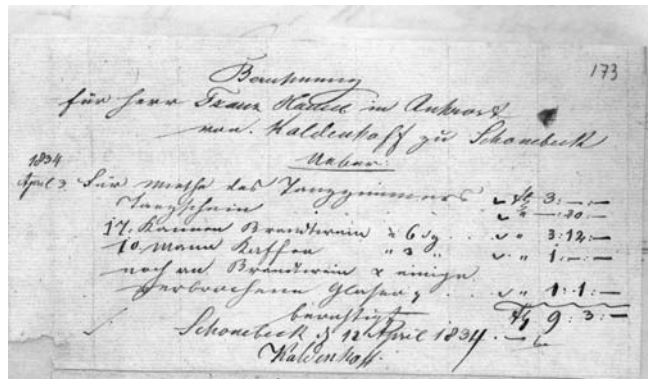 173
Berechnung
für Herr Franz in Antwort
von. Kaldenhoff zu Schonebeck
Ueber
1834
April 3. Für Miethe des Tanzzimmers rf 3:—:—
Tanzschein " —:20:—
17. Kannen Brandtwein a 6 sg . . " 3:12:—
10. Mann Kaffee " 3 " " 1:—:—
noch an Brandtwein & einige
verbrochene Glaser . . " 1:1:—
berichtigt 9:3:—
Schonebeck d 12 April 1834.
Kaldenhoff